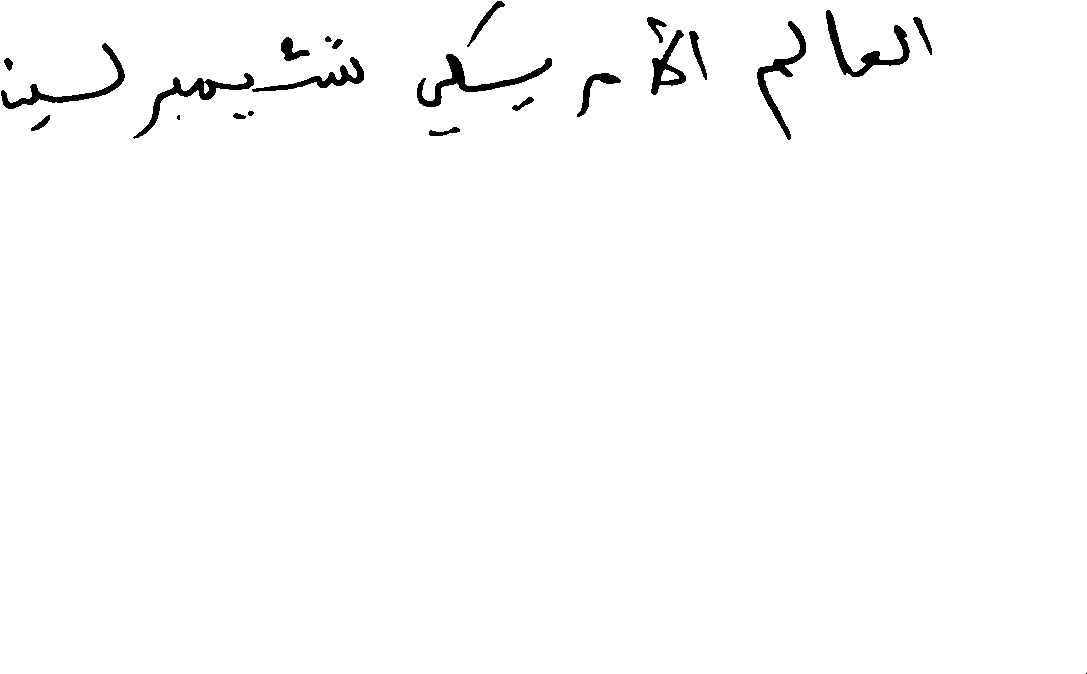 العالم الأمريكي تشيمبرلين